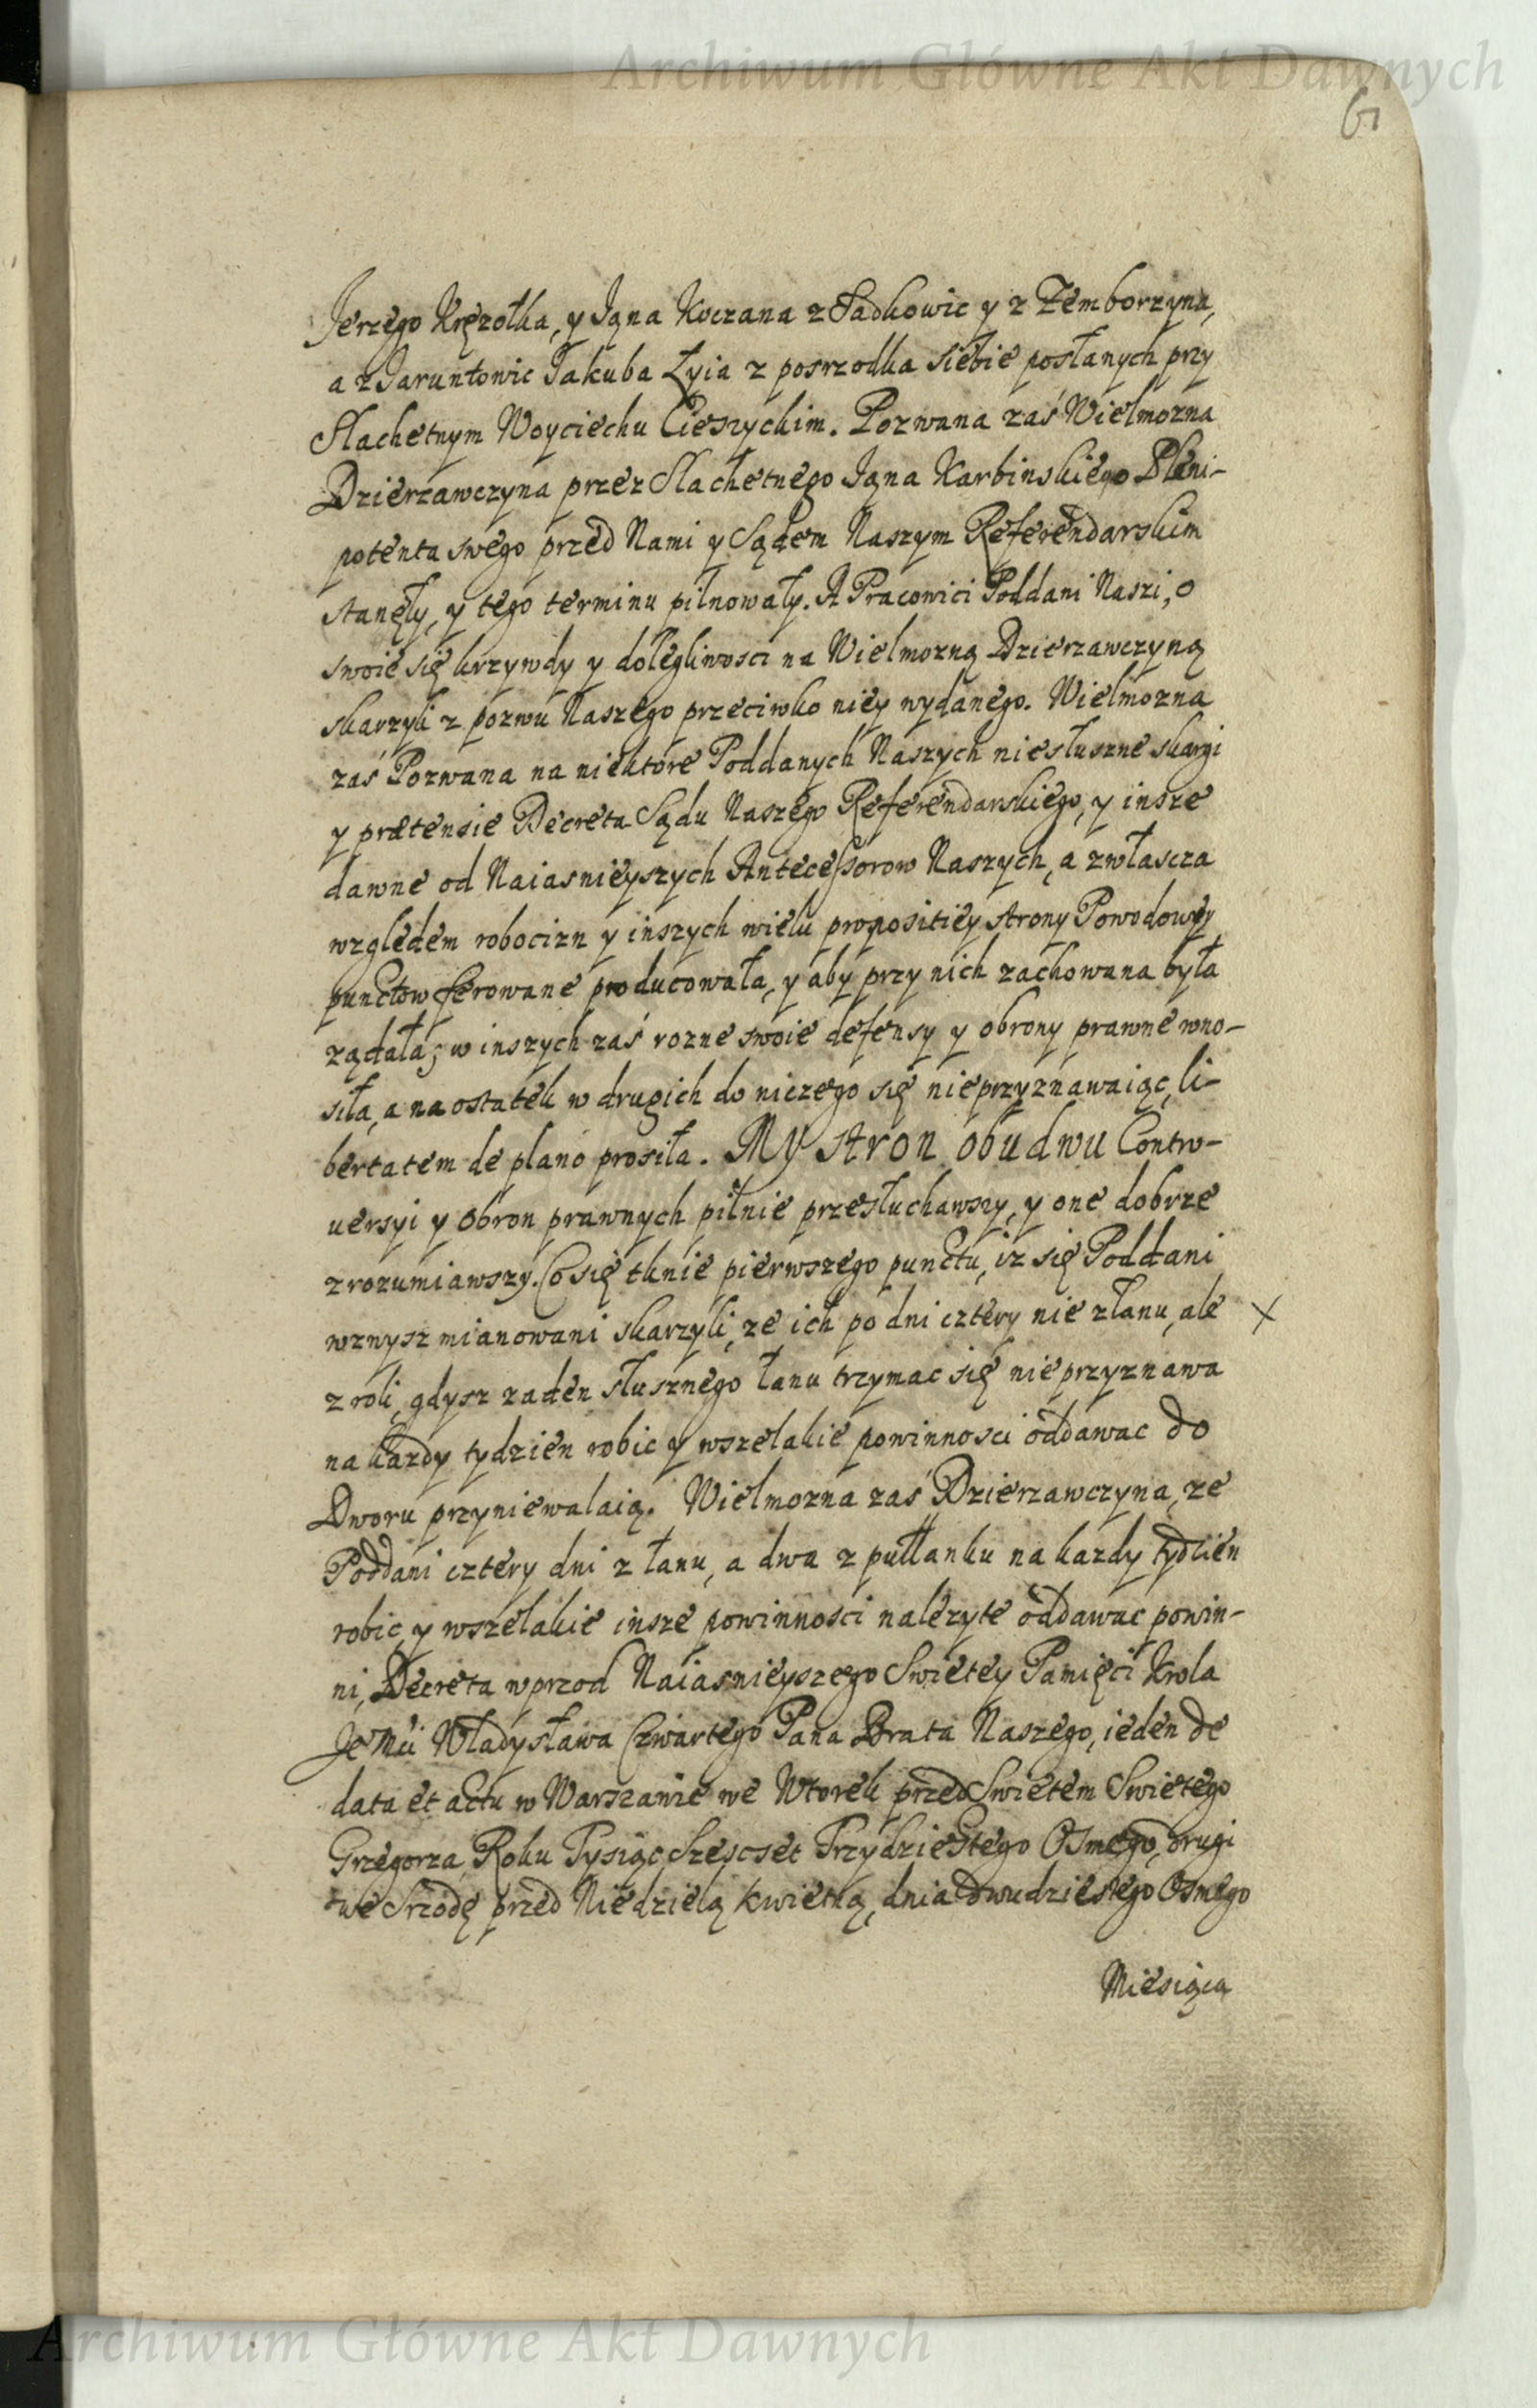 Archiwum Główne Akt Dawnych
61
Jerzego Kręzołka, y Jana Kuczana z Sadkowic y z Zemborzyna,
a z Jaruntowic Jakuba Łyia z posrzodka siebie posłanych przy
Slachetnym Woyciechu Cieszyckim. Pozwana zaś Wielmozna
Dzierzawczyna przez Slachetnego Jana Karbinskiego Pleni-
potenta swego przed Nami y Sądem Naszym Referendarskim
stanęły, y tego terminu pilnowały. A Pracowici Poddani Naszi, o
swoie się krzywdy y dolegliwosci na Wielmozną Dzierzawczyną
skarzyli z pozwu Naszego przeciwko niey wydanego. Wielmozna
zaś Pozwana na niektore Poddanych Naszych niesłuszne skargi
y prætensie Decreta Sądu Naszego Referendarskiego, y insze
dawne od Naiasnieyszych Antecessorow Naszych, a zwłascza
względem robocizn y inszych wielu propositiey strony Powodowey
punctow ferowane producowała, y aby przy nich zachowana była
ządała; w inszych zaś rozne swoie defensy y obrony prawne wno-
siła, a na ostatek w drugich do niczego się nieprzyznawaiąc, li-
bertatem de plano prosiła. My stron obudwu Contro-
uersyi y obron prawnych pilnie przesłuchawszy, y one dobrze
zrozumiawszy. Co się tknie pierwszego punctu, iz się Poddani
wznysz mianowani skarzyli, ze ich po dni cztery nie złanu, ale X
z roli, gdysz zaden słusznego łanu trzymac się nieprzyznawa
na kazdy tydzien robic y wszelakie powinnosci oddawac do
Dworu przyniewalaią. Wielmozna zaś Dzierzawczyna, ze
Poddani cztery dni z łanu, a dwa z pułłanku na kazdy tydzien
robic, y wszelakie insze powinnosci nalezyte oddawac powin-
ni, Decreta wprzod Naiasnieyszego Swietey Pamięci Krola
Je Mci Władysława Czwartego Pana Brata Naszego, ieden de
data et actu w Warszawie we Wtorek przed Swietem Swietego
Grzegorza, Roku Tysiąc Szescset Trzydziestego Osmego, drugi
we Srzodę przed Niedzielą Kwietną, dnia dwudziestego Osmego
Miesiąca
Archiwum Główne Akt Dawnych